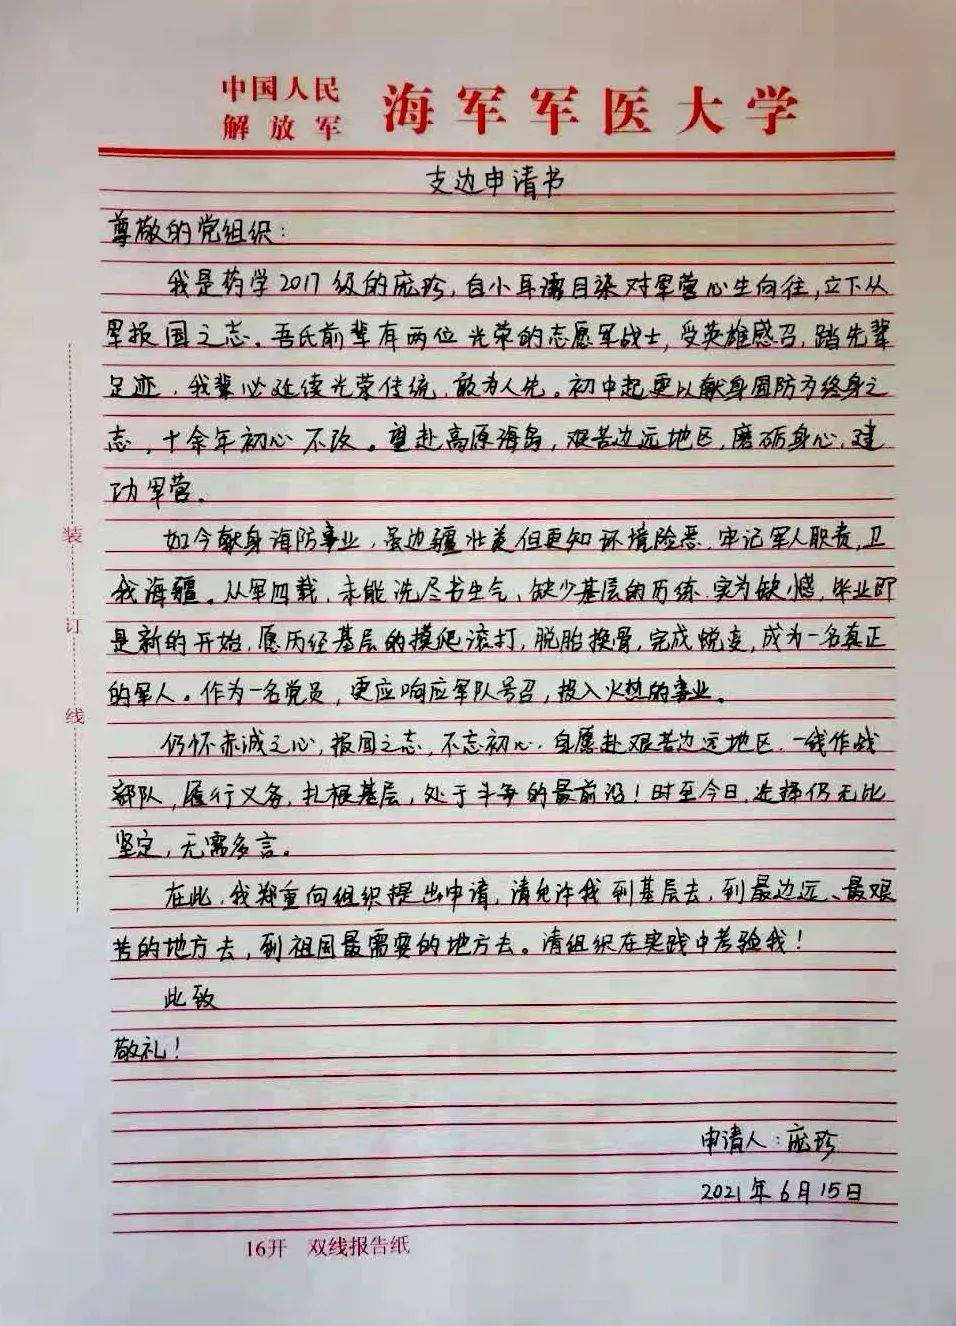 中国人民
解放军
海军军医大学
支边申请书
尊敬的党组织：
我是药学2017级的庞珍，自小耳濡目染对军营心生向往，立下从
军报国之志。吾氏前辈有两位光荣的志愿军战士，受英雄感召，踏先辈
足迹，我辈必延续光荣传统，敢为人先。初中起更以献身国防为终身之
志，十余年初心不改。望赴高原海岛，艰苦边远地区，磨砺身心，建
功军营。
如今献身海防事业，虽边疆壮美但更知环境险恶，牢记军人职责，卫
我海疆。从军四载，未能洗尽书生气，缺少基层的历练，实为缺憾，毕业即
是新的开始，愿历经基层的摸爬滚打，脱胎换骨，完成蜕变，成为一名真正
的军人。作为一名党员，更应响应军队号召，投入火热的事业。
仍怀赤诚之心，报国之志，不忘初心，自愿赴艰苦边远地区，一线作战
部队，履行义务，扎根基层，处于斗争的最前沿！时至今日，选择仍无比
坚定，无需多言。
在此，我郑重向组织提出申请，请允许我到基层去，到最边远、最艰
苦的地方去，到祖国最需要的地方去。请组织在实践中考验我！
此致
敬礼！
申请人：庞珍
2021年6月15日
装
订
线
16开 双线报告纸